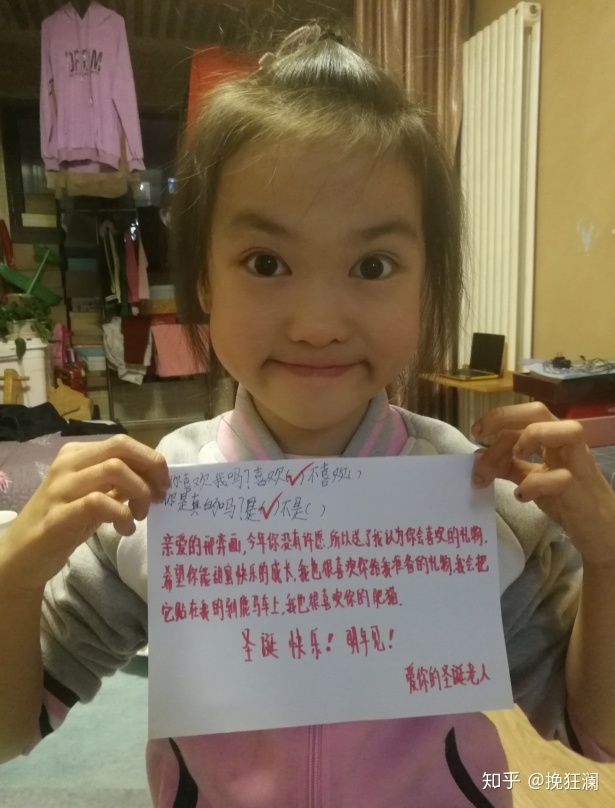 你喜欢我吗?喜欢(✓)不喜欢( )
你是真的吗?是(✓)不是( )
亲爱的 画,今年你没有许愿,所以送了我认为你会喜欢的礼物.
希望你能甜蜜快乐的成长,我也很喜欢你给我准备的礼物,我会把
它贴在我的 鹿马车上,我也很喜欢你的肥猫.
圣诞快乐!明年见!
爱你的圣诞老人
知乎 @挽狂澜